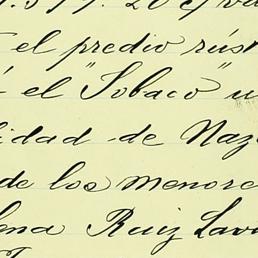 el predio rúst
el "Tobaco" u
lidad de Naz
de los menore
lena Ruiz Lavi